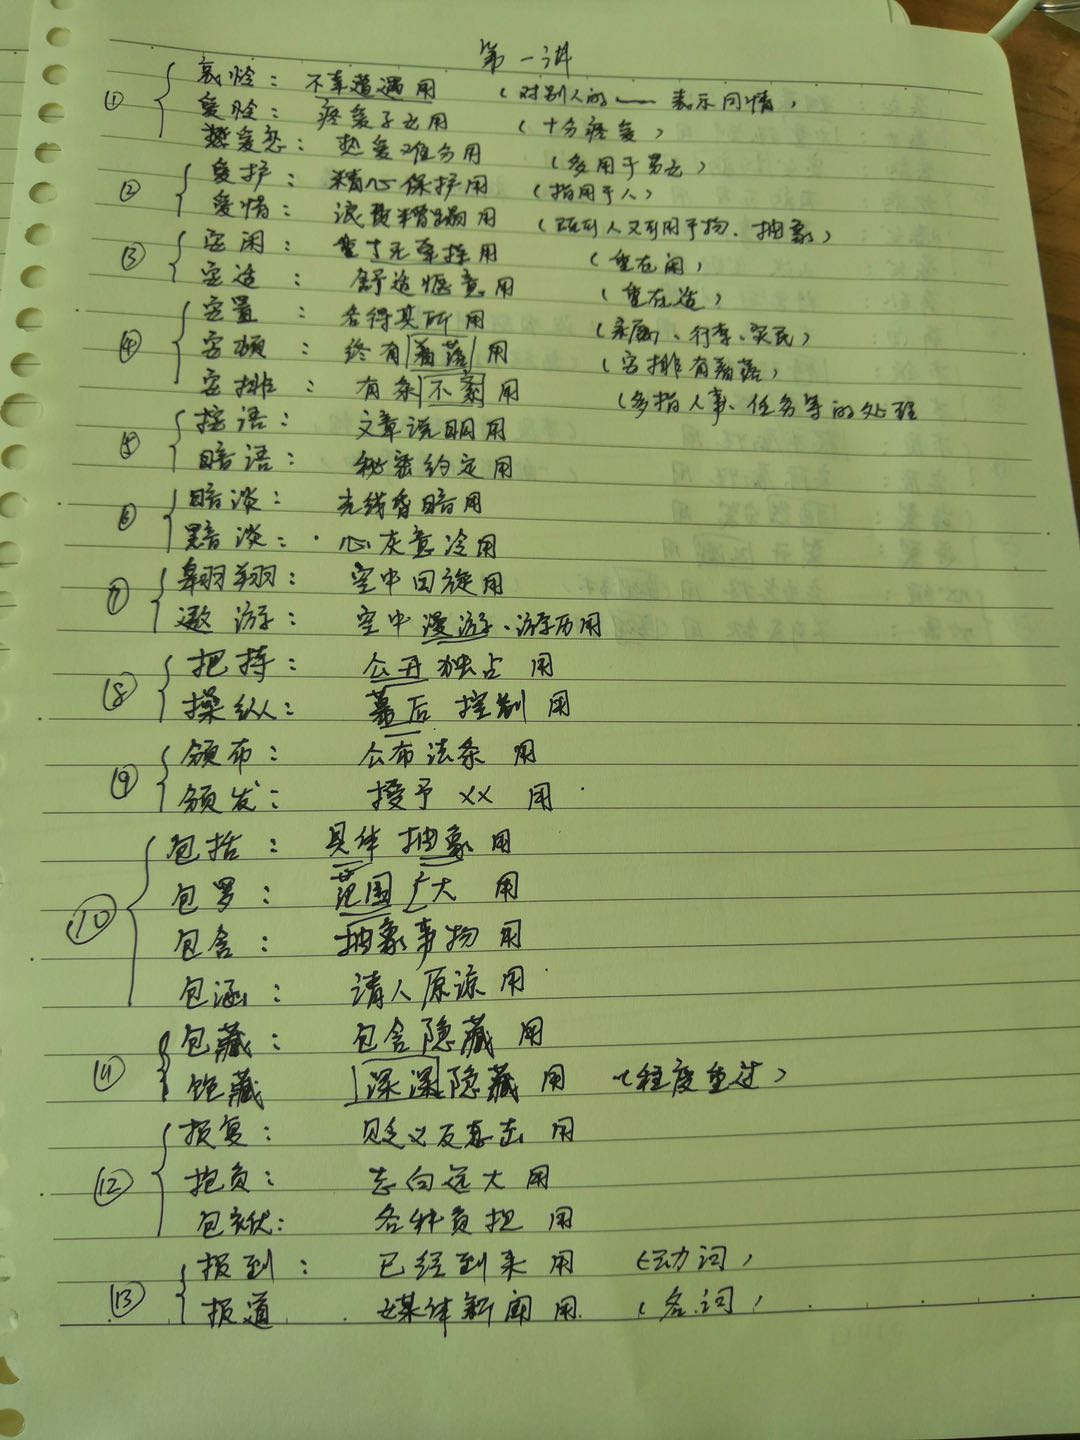 第一讲
① 哀怜：不幸遭遇用 （对别人的——表示同情）
爱怜：疼爱子女用 （十分疼爱）
热爱恋：热爱难分用 （多用于男女）
② 爱护：精心保护用 （指用于人）
爱惜：浪费糟蹋用 （既可人又可用于物、抽象）
③ 安闲：宽了无牵挂用 （重在闲）
安适：舒适惬意用 （重在适）
④ 安置：各得其所用 （家属、行李、灾民）
安顿：终有着落用 （安排有着落）
安排：有条不紊用 （多指人事、任务等的处理
⑤ 按语：文章说明用
暗语：秘密约定用
⑥ 暗淡：光线昏暗用
黯淡：心灰意冷用
⑦ 翱翔：空中回旋用
遨游：空中漫游、游历用
⑧ 把持：公开独占用
操纵：幕后控制用
⑨ 颁布：公布法条用
颁发：授予××用
⑩ 包括：具体抽象用
包罗：范围广大用
包含：抽象事物用
包涵：请人原谅用
⑪ 包藏：包含隐藏用
饱藏 深深隐藏用 （程度重过）
⑫ 报复：贬义反意击用
抱负：志向远大用
包袱：各种负担用
⑬ 报到：已经到来用 （动词）
报道 媒体新闻用 （名词）